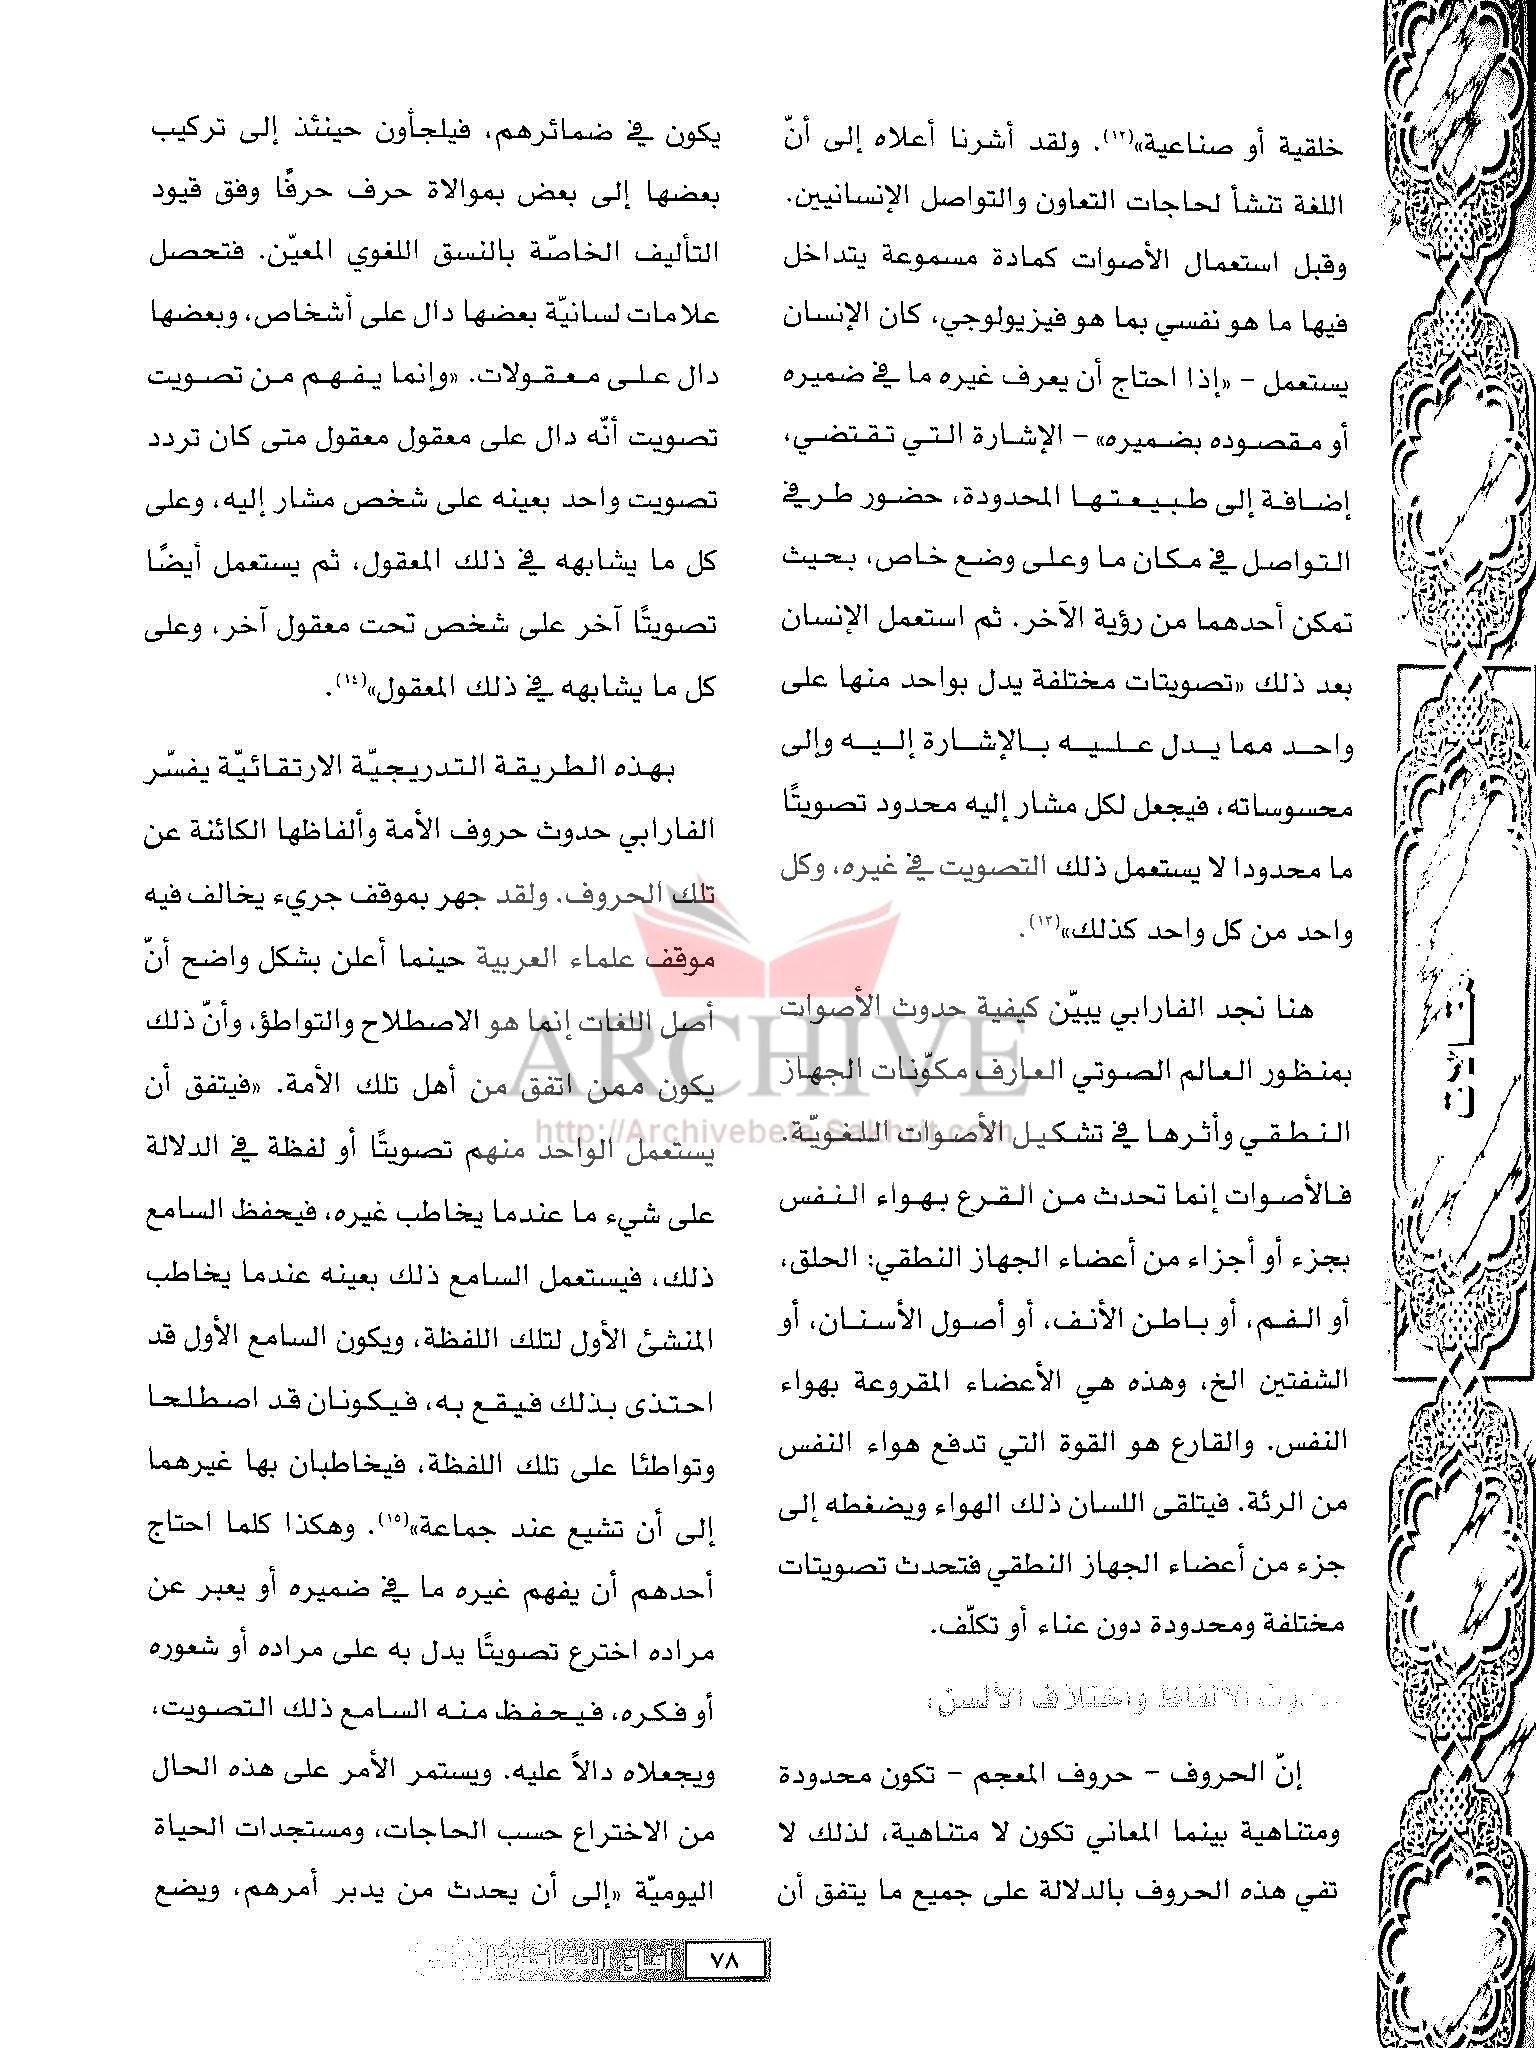 خلقية أو صناعية»(١٢). ولقد أشرنا أعلاه إلى أنّ
اللغة تنشأ لحاجات التعاون والتواصل الإنسانيين.
وقبل استعمال الأصوات كمادة مسموعة يتداخل
فيها ما هو نفسي بما هو فيزيولوجي، كان الإنسان
يستعمل – «إذا احتاج أن يعرف غيره ما في ضميره
أو مقصوده بضميره» – الإشارة التي تقتضي،
إضافة إلى طبيعتها المحدودة، حضور طرفي
التواصل في مكان ما وعلى وضع خاص، بحيث
تمكن أحدهما من رؤية الآخر. ثم استعمل الإنسان
بعد ذلك «تصويتات مختلفة يدل بواحد منها على
واحد مما يدل عليه بالإشارة إليه وإلى
محسوساته، فيجعل لكل مشار إليه محدود تصويتًا
ما محدودا لا يستعمل ذلك التصويت في غيره، وكل
واحد من كل واحد كذلك»(١٣).
هنا نجد الفارابي يبيّن كيفية حدوث الأصوات
بمنظور العالم الصوتي العارف مكوّنات الجهاز
النطقي وأثرها في تشكيل الأصوات اللغويّة.
فالأصوات إنما تحدث من القرع بهواء النفس
بجزء أو أجزاء من أعضاء الجهاز النطقي: الحلق،
أو الفم، أو باطن الأنف، أو أصول الأسنان، أو
الشفتين الخ، وهذه هي الأعضاء المقروعة بهواء
النفس. والقارع هو القوة التي تدفع هواء النفس
من الرئة. فيتلقى اللسان ذلك الهواء ويضغطه إلى
جزء من أعضاء الجهاز النطقي فتحدث تصويتات
مختلفة ومحدودة دون عناء أو تكلّف.
الألفاظ واختلاف الألسن:
إنّ الحروف – حروف المعجم – تكون محدودة
ومتناهية بينما المعاني تكون لا متناهية، لذلك لا
تفي هذه الحروف بالدلالة على جميع ما يتفق أن
يكون في ضمائرهم، فيلجأون حينئذ إلى تركيب
بعضها إلى بعض بموالاة حرف حرفًا وفق قيود
التأليف الخاصّة بالنسق اللغوي المعيّن. فتحصل
علامات لسانيّة بعضها دال على أشخاص، وبعضها
دال على معقولات. «وإنما يفهم من تصويت
تصويت أنّه دال على معقول معقول متى كان تردد
تصويت واحد بعينه على شخص مشار إليه، وعلى
كل ما يشابهه في ذلك المعقول، ثم يستعمل أيضًا
تصويتًا آخر على شخص تحت معقول آخر، وعلى
كل ما يشابهه في ذلك المعقول»(١٤).
بهذه الطريقة التدريجيّة الارتقائيّة يفسّر
الفارابي حدوث حروف الأمة وألفاظها الكائنة عن
تلك الحروف. ولقد جهر بموقف جريء يخالف فيه
موقف علماء العربية حينما أعلن بشكل واضح أنّ
أصل اللغات إنما هو الاصطلاح والتواطؤ، وأنّ ذلك
يكون ممن اتفق من أهل تلك الأمة. «فيتفق أن
يستعمل الواحد منهم تصويتًا أو لفظة في الدلالة
على شيء ما عندما يخاطب غيره، فيحفظ السامع
ذلك، فيستعمل السامع ذلك بعينه عندما يخاطب
المنشئ الأول لتلك اللفظة، ويكون السامع الأول قد
احتذى بذلك فيقع به، فيكونان قد اصطلحا
وتواطئا على تلك اللفظة، فيخاطبان بها غيرهما
إلى أن تشيع عند جماعة»(١٥). وهكذا كلما احتاج
أحدهم أن يفهم غيره ما في ضميره أو يعبر عن
مراده اخترع تصويتًا يدل به على مراده أو شعوره
أو فكره، فيحفظ منه السامع ذلك التصويت،
ويجعلاه دالاً عليه. ويستمر الأمر على هذه الحال
من الاختراع حسب الحاجات، ومستجدات الحياة
اليوميّة «إلى أن يحدث من يدبر أمرهم، ويضع
ARCHIVE
http://Archivebeta.Sakhrit.com
٧٨
آفاق الثقافة